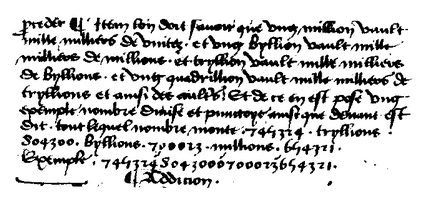 preceder ¶ Item lon doit savoir que ung million vault
mille milliers de unitez · et ung byllion vault mille
milliers de millions · et tryllion vault mille milliers
de byllions · et ung quadrillion vault mille milliers de
tryllions et ainsi des aultres Et de ce en est pose ung
exemple nombre divise et punctoye ainsi que devant est
dit · tout lequel nombre monte · 745324 · tryllions ·
804300 · byllions · 700023 · millions · 654321 ·
Exemple · 745324804300700023654321 ·
¶ Addicion ·